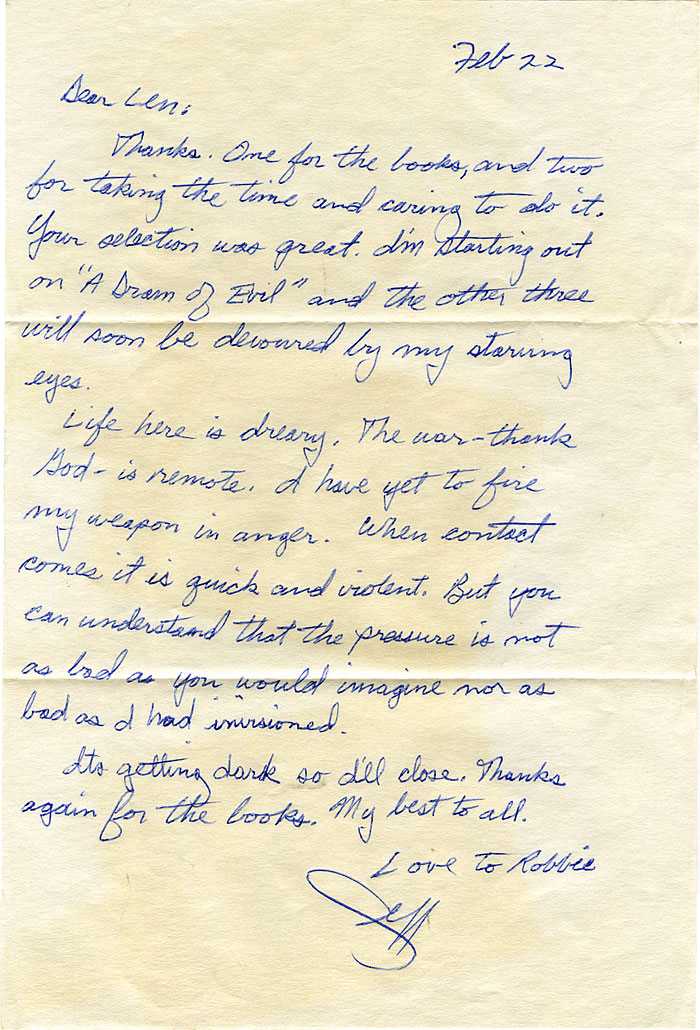 Feb 22
Dear Len:
Thanks. One for the books, and two
for taking the time and caring to do it.
Your selection was great. I'm starting out
on "A Dram of Evil" and the other three
will soon be devoured by my starving
eyes.
Life here is dreary. The war-thank
God- is remote. I have yet to fire
my weapon in anger. When contact
comes it is quick and violent. But you
can understand that the pressure is not
as bad as you would imagine nor as
bad as I had invisioned.
Its getting dark so I'll close. Thanks
again for the books. My best to all.
Love to Robbie
Jeff